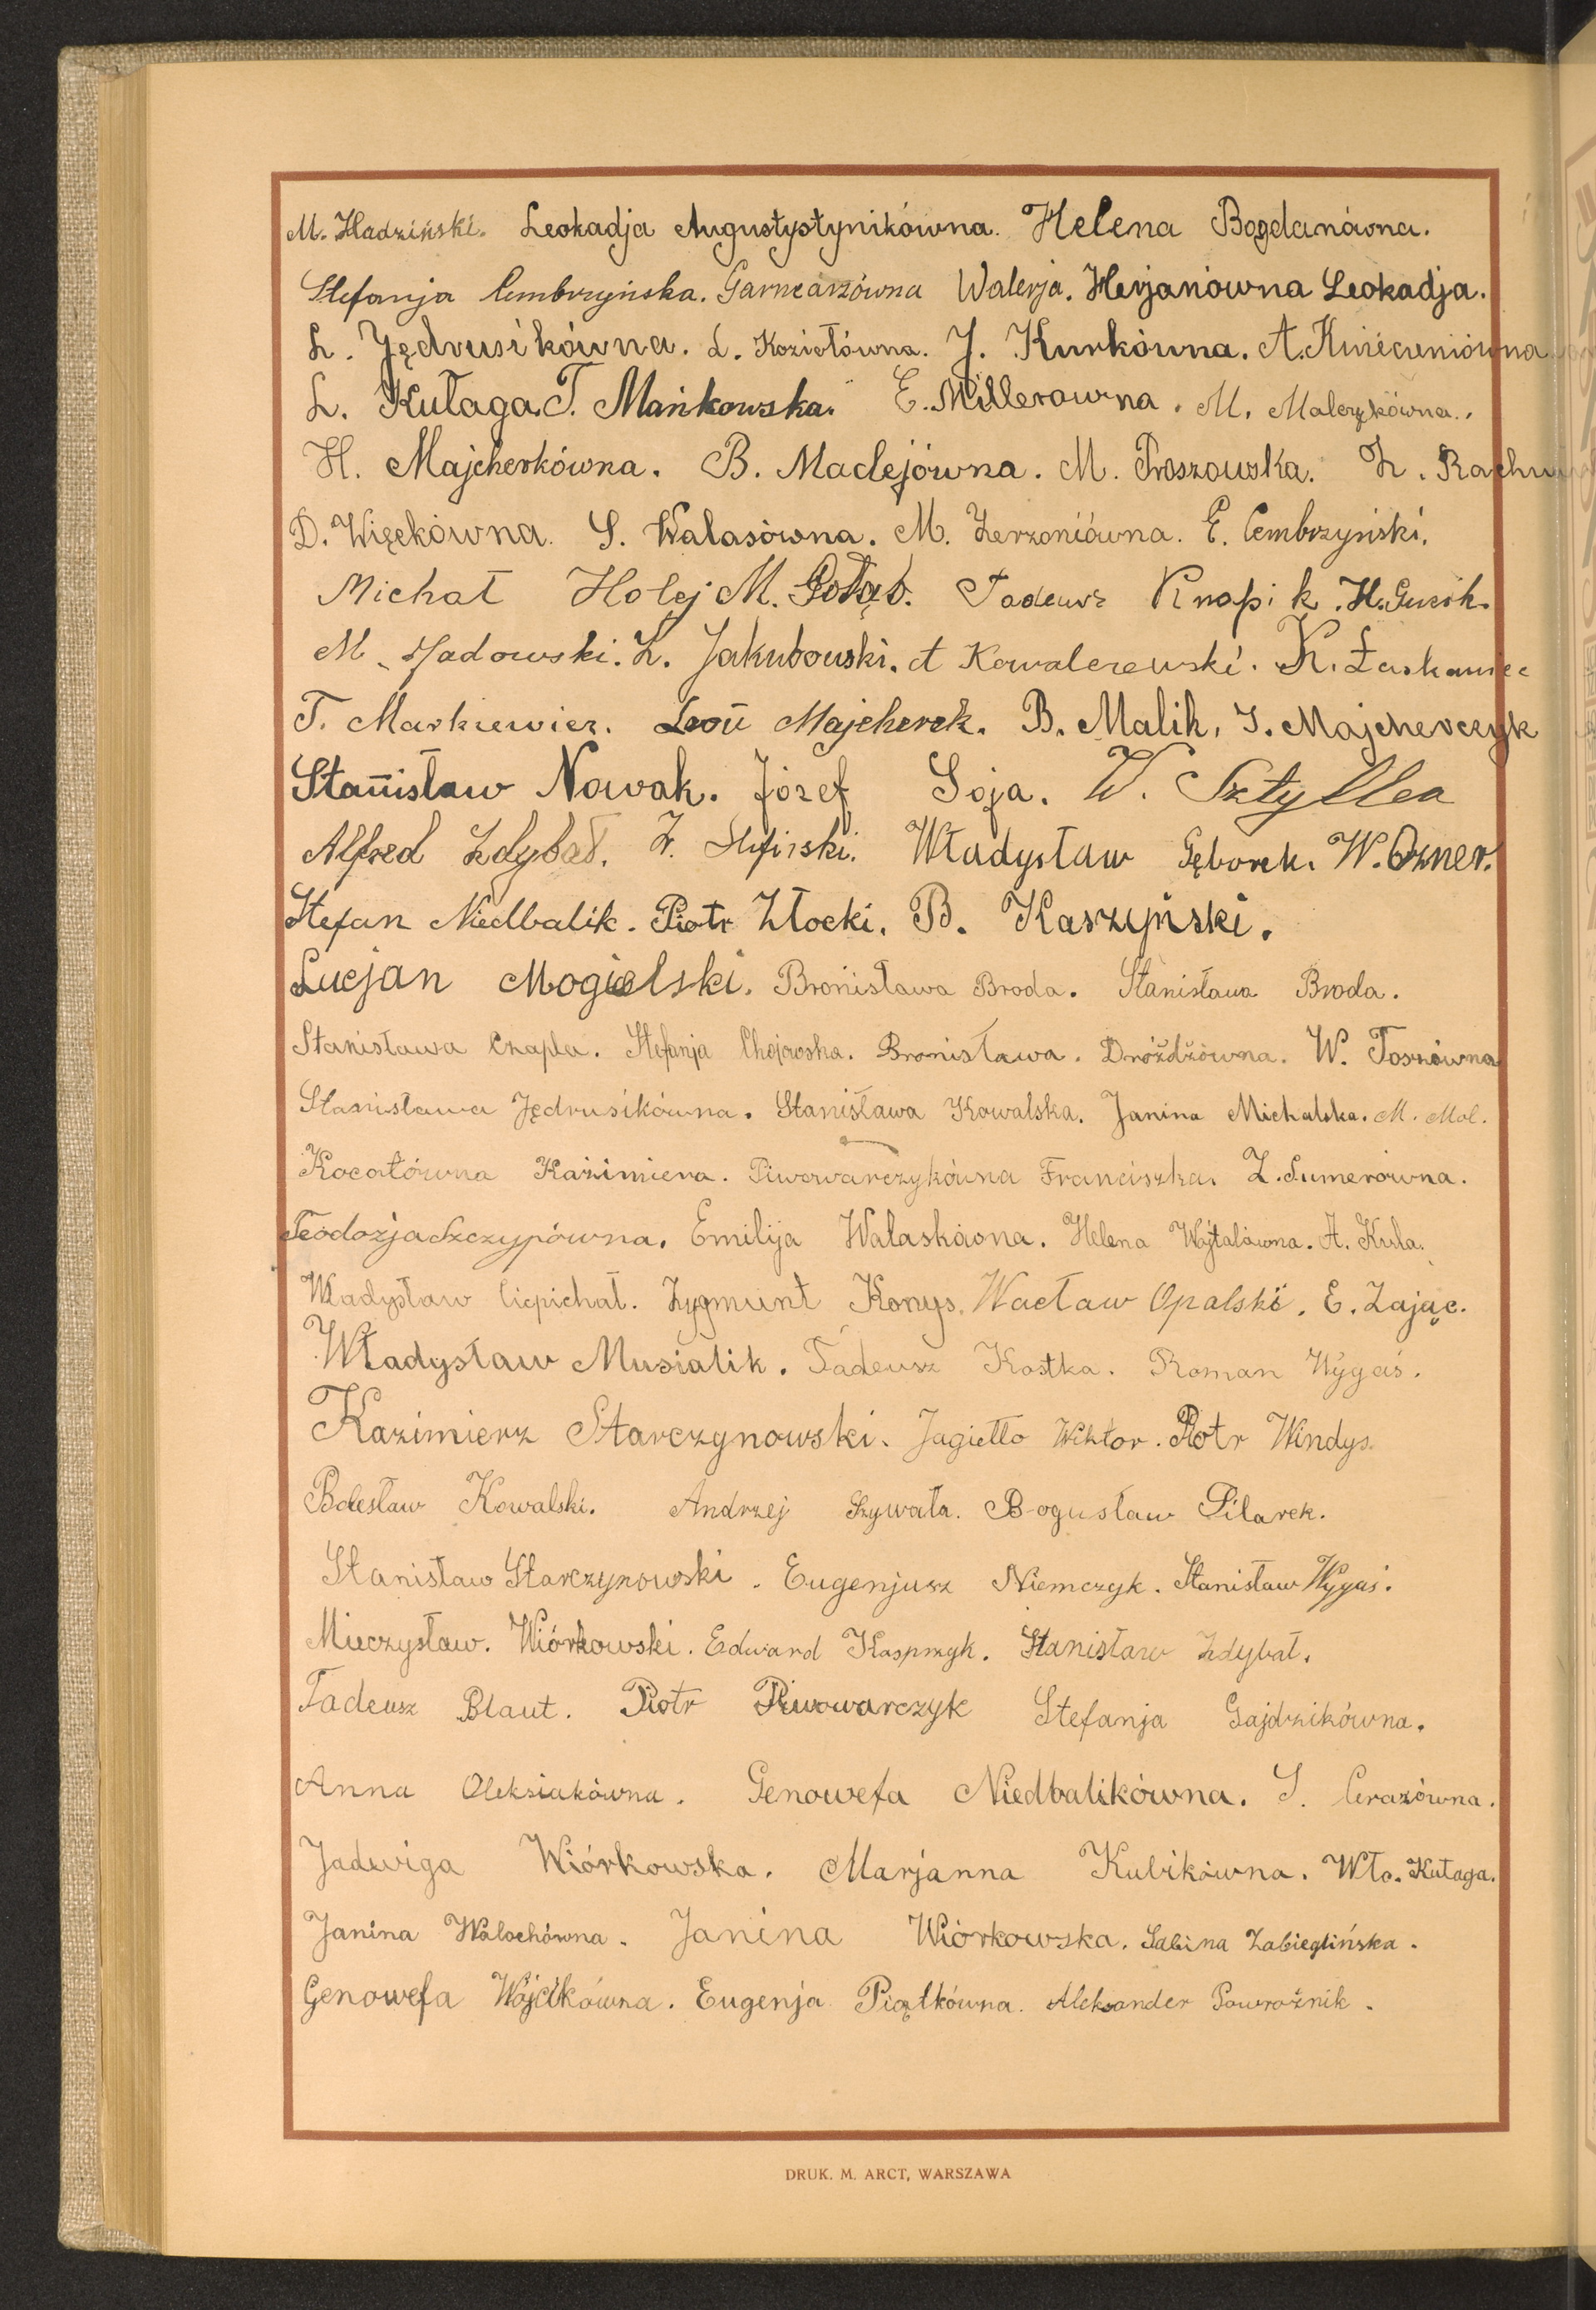 M. Hadziński. Leokadja Augustystynikówna. Helena Bogdanówna.
Stefanja Cembrzyńska. Garncarzówna Walerja. Herjanówna Leokadja.
L. Jędrusikówna. L. Koziołówna. J. Kurkówna. A. Kwiecuniówna
L. Kułaga. T. Mańkowska. E. Millerowna. M. Malczykówna.
H. Majcherkówna. B. Maciejówna. M. Proszowska. Z.
D. Więckówna. S. Walasówna. M. Zerzoniówna. E. Cembrzyński.
Michał Holej M. Gołąb. Tadeusz Knapik. H. Gucik.
M. Jadowski. Z. Jakubowski. A Kowalczewski. K. Łaskawiec
T. Markiewicz. Leon Majcherek. B. Malik. J. Majcherczyk
Stanisław Nowak. Józef Soja. W. Sztyller
Alfred Zdybał. Z. Władysław Gęborek. W. Ozner.
Stefan Niedbalik. Piotr Złocki. B. Kaszyński.
Lucjan Mogielski. Bronisława Broda. Stanisława Broda.
Stanisława Czapla. Stefanja Chojowska. Bronisława. Dróżdżówna. W. Toszówna
Stanisława Jędrusikówna. Stanisława Kowalska. Janina Michalska. M. Mol.
Kocotówna Kazimiera. Piwowarczykówna Franciszka. Z. Sumerówna.
Teodozja Szczypówna. Emilija Walaskówna. Helena Wojtalówna. A. Kula.
Władysław Ciepichał. Zygmunt Konys. Wacław Opalski. E. Zając.
Władysław Musialik. Tadeusz Kostka. Roman Wygaś.
Kazimierz Starczynowski. Jagiełło Wiktor. Piotr Windys.
Bolesław Kowalski. Andrzej Szywała. Bogusław Pilarek.
Stanisław Starczynowski. Eugenjusz Niemczyk. Stanisław Wygaś.
Mieczysław. Wiórkowski. Edward Kasprzyk. Stanisław Zdybał.
Tadeusz Blaut. Piotr Piwowarczyk Stefanja Gajdzikówna.
Anna Oleksiakówna. Genowefa Niedbalikówna. S. Cerazówna.
Jadwiga Wiórkowska. Marjanna Kubikówna. Wło. Kułaga.
Janina Walochówna. Janina Wiórkowska. Sabina Zabieglińska.
Genowefa Wójcikówna. Eugenja Piątkówna. Aleksander Powroźnik.
DRUK. M. ARCT, WARSZAWA